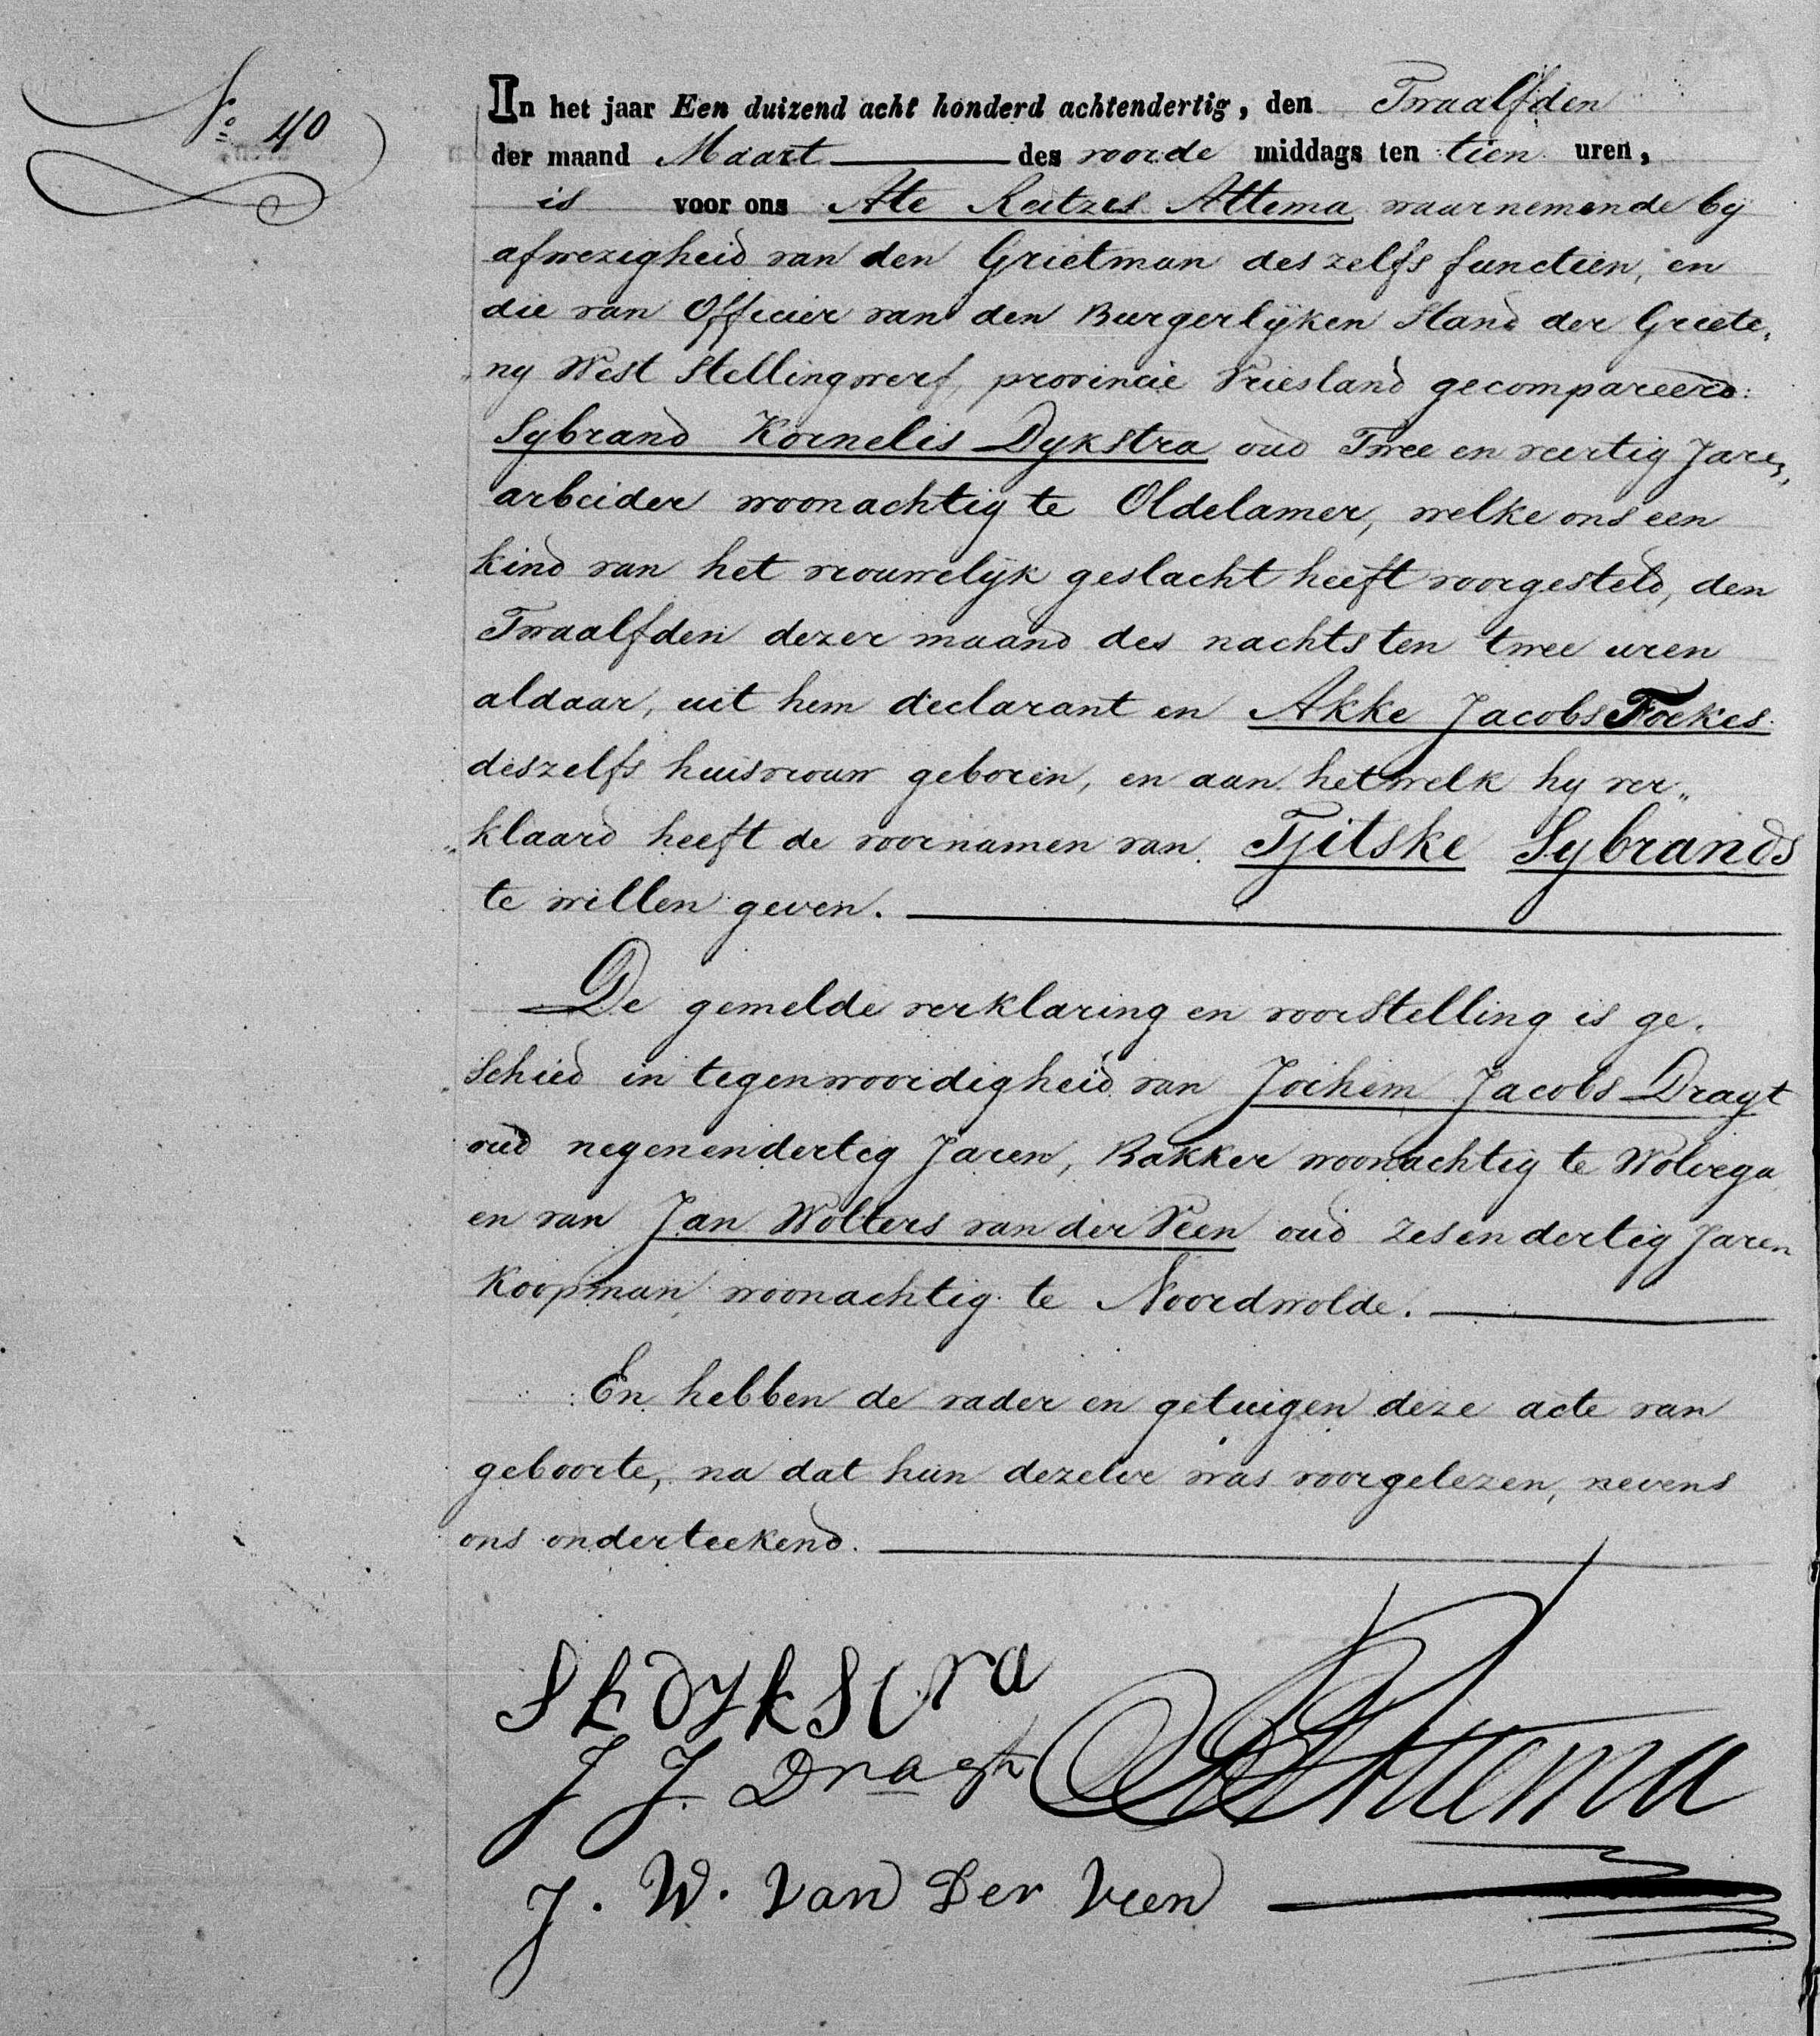 No 40
In het jaar Een duizend acht honderd achtendertig, den Twaalfden
der maand Maart des voorde middags ten tien uren,
is voor ons Ate Reitzes Attema waarnemende by
afwezigheid van den Grietman deszelfs functien, en
die van Officier van den Burgerlyken Stand der Griete„
„ny West Stellingwerf, provincie Vriesland gecompareerd:
Sybrand Kornelis Dykstra oud Twee en veertig Jaren,
arbeider woonachtig te Oldelamer, welke ons een
kind van het vrouwelyk geslacht heeft voorgesteld, den
Twaalfden dezer maand des nachts ten twee uren
aldaar, uit hem declarant en Akke Jacobs Foekes
deszelfs huisvrouw geboren, en aan hetwelk hy ver„
„klaard heeft de voornamen van Tjitske Sybrands
te willen geven.
De gemelde verklaring en voorstelling is ge„
„schied in tegenwoordigheid van Jochem Jacobs Dragt
oud negenendertig Jaren, Bakker woonachtig te Wolvega
en van Jan Wolters van der Veen oud zesendertig Jaren
Koopman woonachtig te Noordwolde.
En hebben de vader en getuigen deze acte van
geboorte, na dat hun dezelve was voorgelezen, nevens
ons onderteekend.
S K Dykstra
J J Dragt
Attema
J. W. van Der Veen